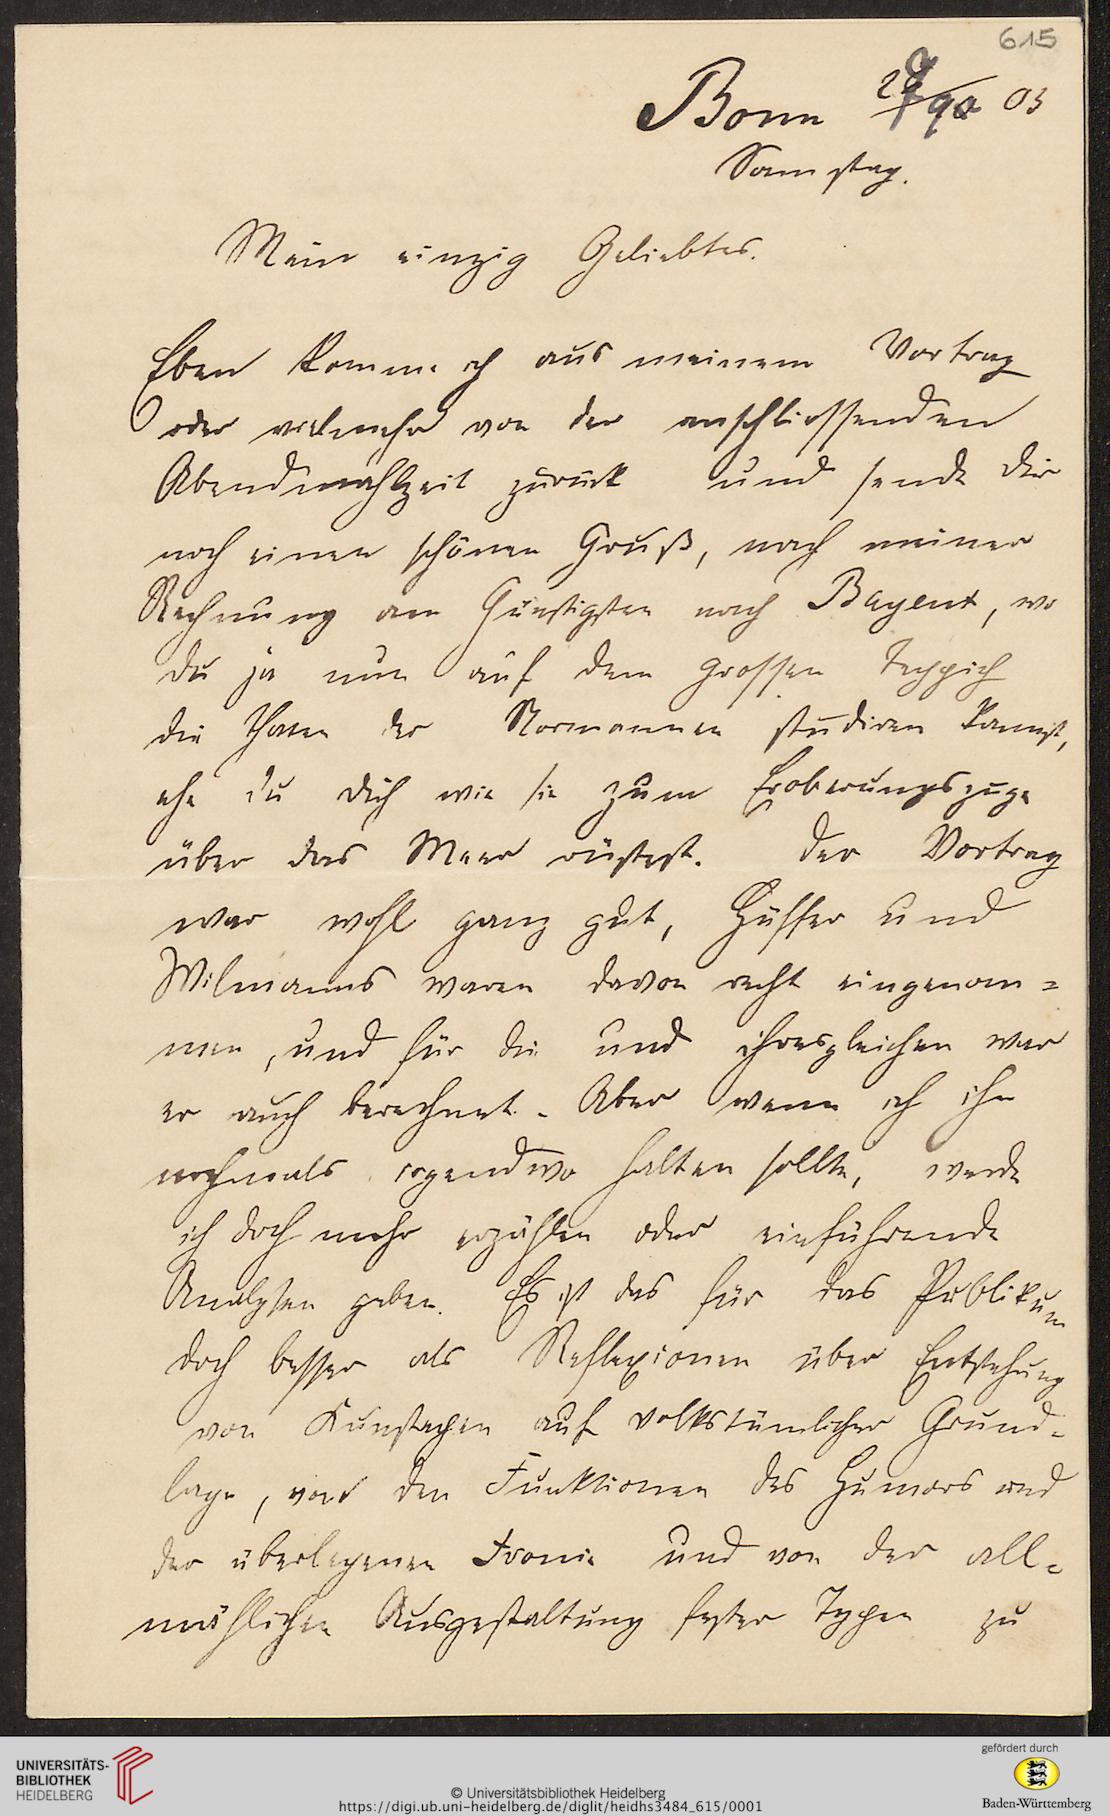 615
Bonn 28/90 03
Samstag.
Mein einzig Geliebtes.
Eben komme ich aus meinem Vortrag
oder vielmehr von der anschliessenden
Abendmahlzeit zurück und sende dir
noch einen schönen Gruß, nach meiner
Rechnung am Günstigsten nach Bayeux, wo
du ja nun auf dem grossen Teppich
die Thaten der Normannen studiren kannst,
ehe du dich wie sie zum Eroberungszuge
über das Meer rüstest. Der Vortrag
war wohl ganz gut, Hüffer und
Wilmanns waren davon recht eingenom=
men, und für die und ihresgleichen war
er auch berechnet. Aber wenn ich ihn
nochmals irgendwo halten sollte, werde
ich doch mehr erzählen oder einführende
Analysen geben. Es ist das für das Publikum
doch besser als Reflexionen über Entstehung
von Kunstepen auf volkstümlicher Grund=
lage, von den Funktionen des Humors und
der überlegenen Ironie und von der all=
mählichen Ausgestaltung fester Typen zu
UNIVERSITÄTS-
BIBLIOTHEK
HEIDELBERG
© Universitätsbibliothek Heidelberg
https://digi.ub.uni-heidelberg.de/diglit/heidhs3484_615/0001
gefördert durch
Baden-Württemberg